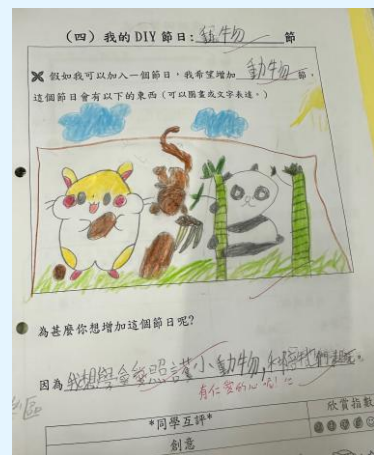 （四）我的DIY節日：動物 節
✘ 假如我可以加入一個節日，我希望增加 動物 節，
這個節日會有以下的東西（可以圖畫或文字表達。）
為甚麼你想增加這個節日呢？
因為我想學會照護小動物，和陪牠們
有仁愛的心呢！
*同學互評*
欣賞指數
創意